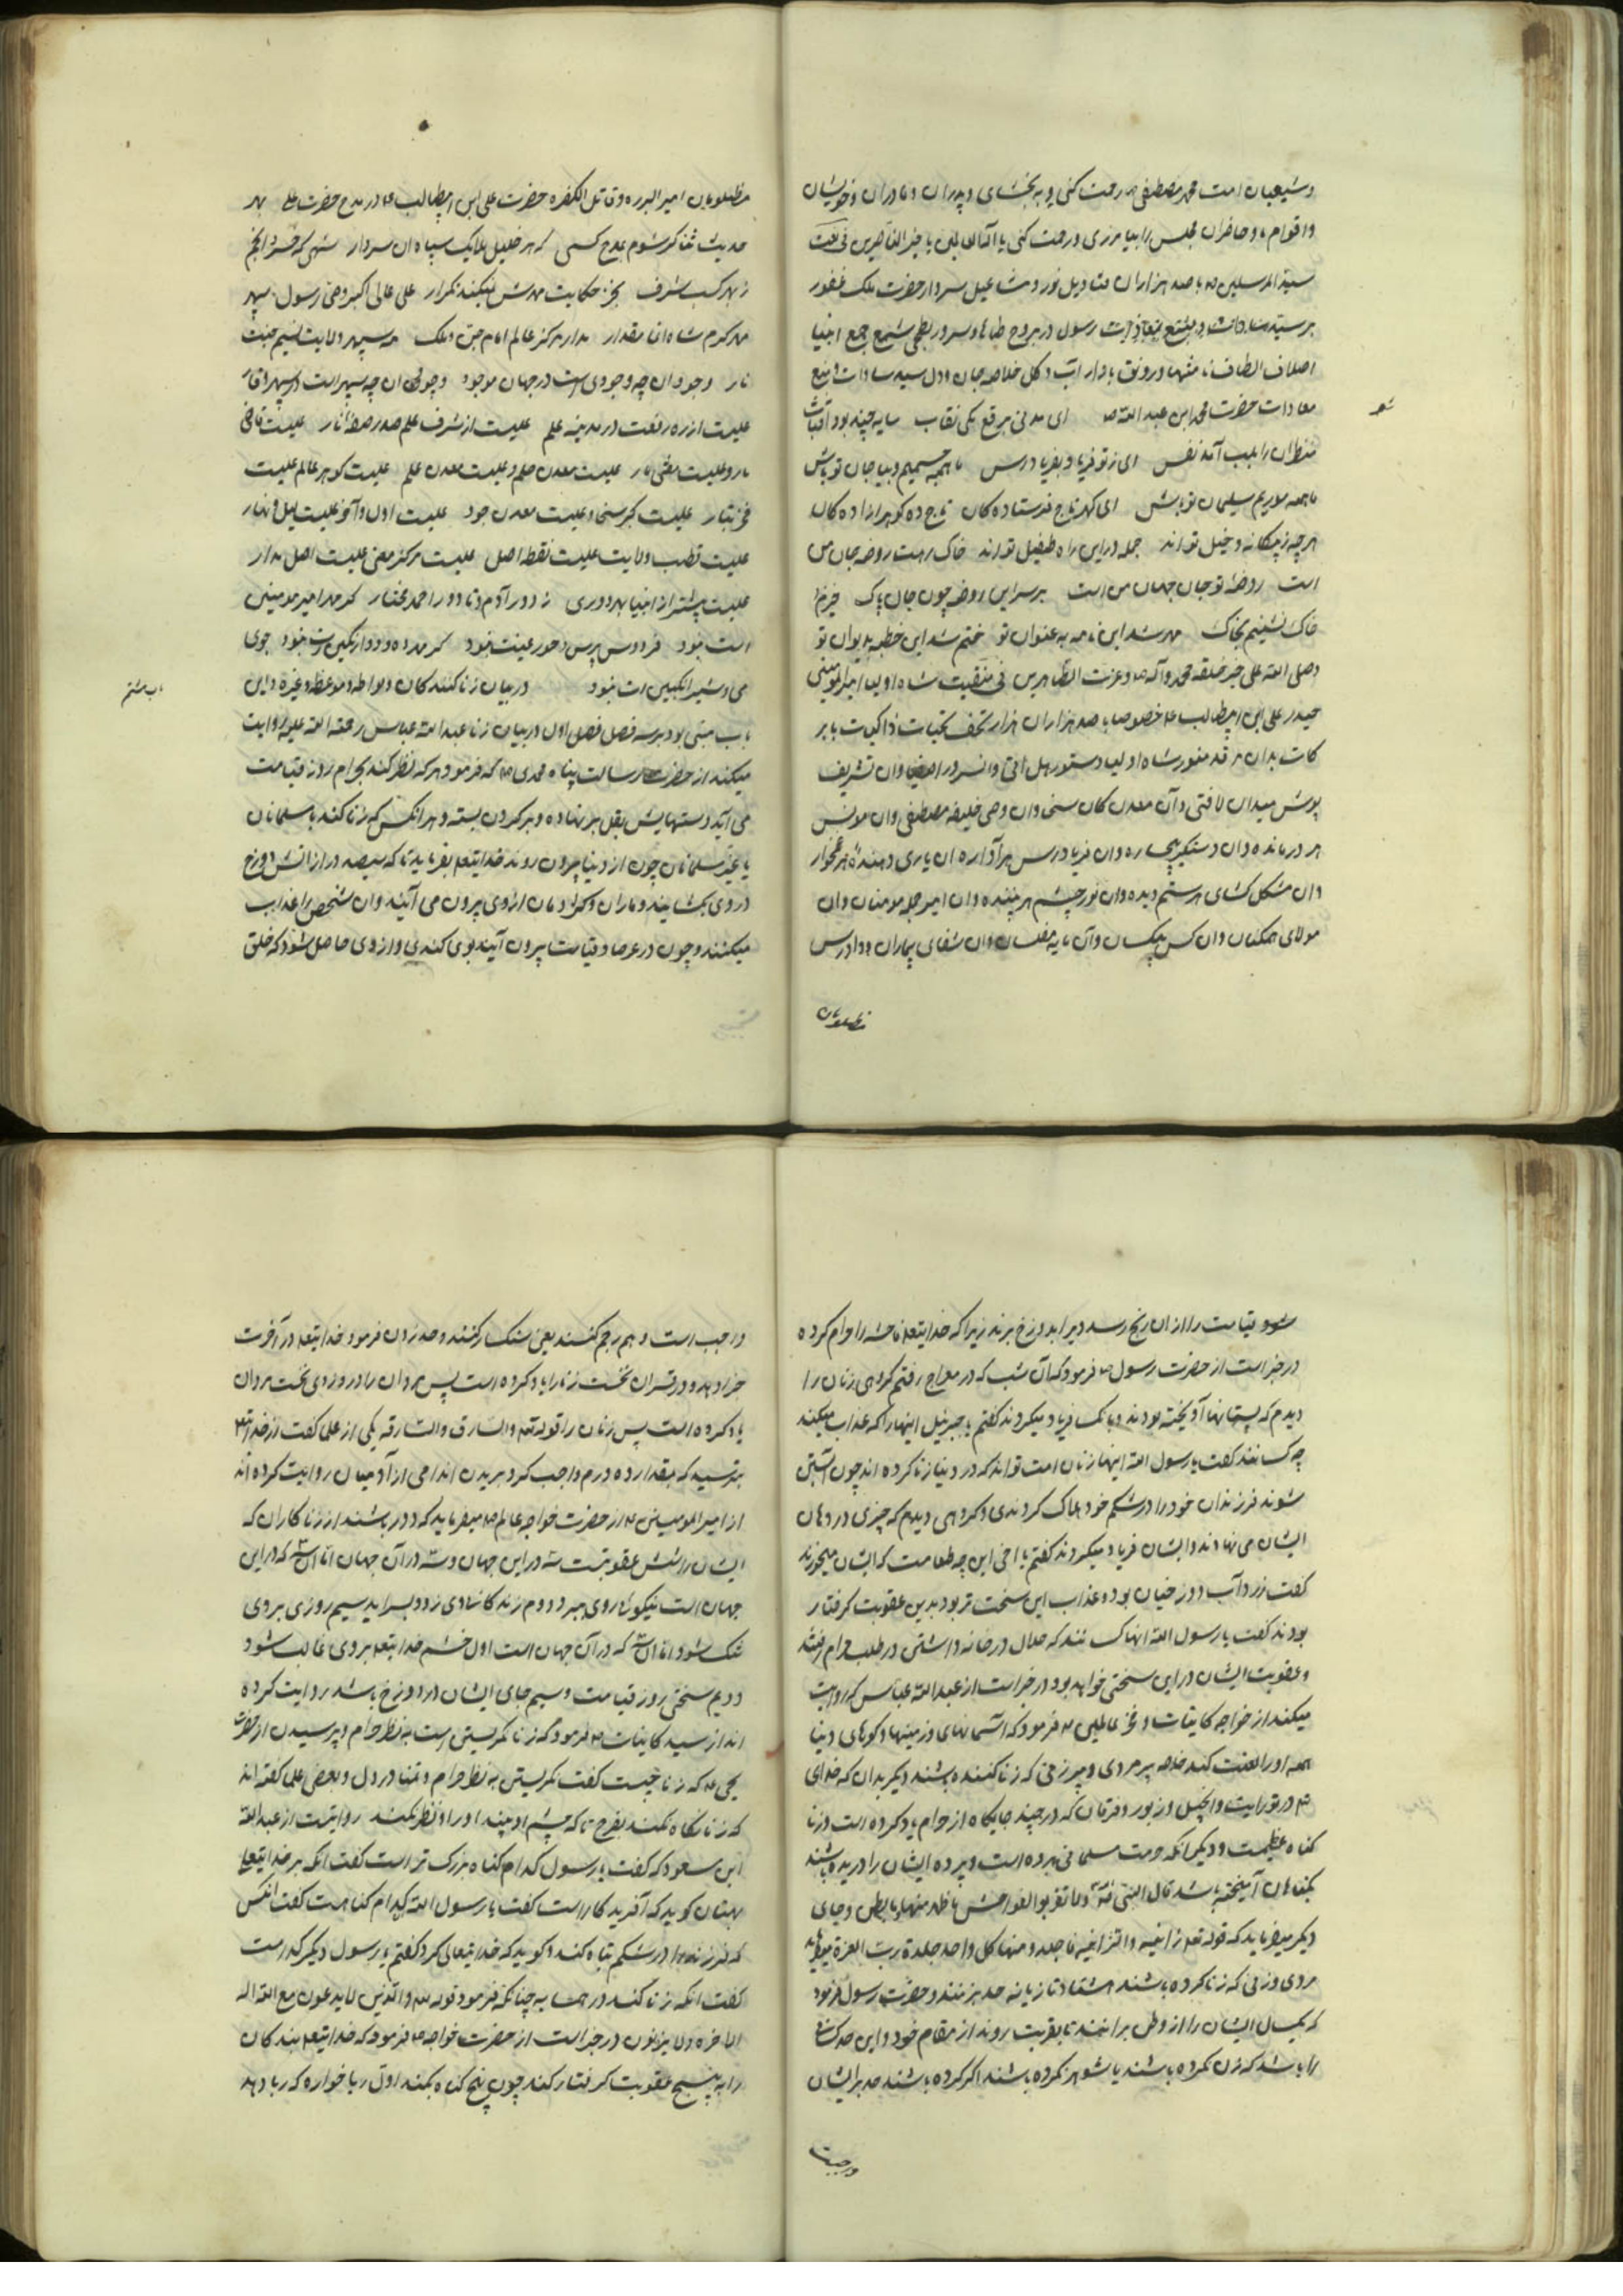 و شیعیان امت محمد مصطفی ص رحمت کنی و به بخشای و پدران و مادران و خویشان
و اقوام ما و حاضران مجلس را بیامرزی و رحمت کنی یا اله العالمین یا خیر الناصرین فی نعت
سید المرسلین ص با صد هزاران قنادیل نور و مشاعیل سردار حضرت ملک غفور
بر سید سادات و رسول در بروج طاها و سرور بطحی شمع جمع انبیا
اصلاف الطاف و رونق بازار آب و گل خلاصه جان و دل سید سادات و منبع
سعادات حضرت محمد ابن عبد الله ص ای مدنی برقع مکی نقاب سایه نشین چند بود آفتاب
شعر
منتظران را بلب آمد نفس ای ز تو فریاد بفریاد رس ما همه جسمیم و بیا جان تو باش
ما همه موریم سلیمان تو باش ای گهر تاج فرستادگان تاج ده گوهر آزادگان
هر چه ز بیگانه و خیل تو اند جمله در این راه طفیل تو اند خاک رهت روضه جان من
است روضهٔ تو جان جهان من است بر سر این روضه چون جان پاک خیزم
خاک نشینم بخاک مهر شد این نامه به عنوان تو ختم شد این خطبه بدیوان تو
و صلی الله علی خیر خلقه محمد و آله و عترت الطاهرین فی منقبت شاه اولیا امیر المومنین
حیدر علی ابن ابیطالب ع خصوصا با صد هزاران هزار تحف تحیات ذاکیات با بر
کات بدان مرقد منور شاه اولیا دستور هل اتی وان سرور اصفیا وان تشریف
پوش میدان لا فتی و آن معدن کان سخی وان وصی خلیفه مصطفی وان مونس
هر درمانده وان دستگیر بیچاره وان فریاد رس هر آواره ان یاری دهندهٔ هر غمخوار
وان مشکل گشای هر ستم دیده وان نور چشم هر بیننده وان امیر جمله مومنان وان
مولای همگنان وان کس بیکسان وان مایه مفلسان وان شفای بیماران و داد رس
مظلومان
مظلومان امیر البرره و قاتل الکفره حضرت علی ابن ابیطالب ع در مدح حضرت علی بهر
حدیث ثنا گر شوم بمدح کسی که هر خلیل ملایک سپاه ان سردار شهی که خسرو انجم
ز بهر کسب شرف بجز حکایت مدحش نمیکند تکرار علی عالی اکبر وصی رسول سپهر
مهر کرم شاه مقدار مدار مرکز عالم امام جن و ملک مه سپهر ولایت قسیم جنت
نار وجود ان چه وجودی است در جهان موجود
علیست از ره رفعت در مدینه علم علیست از شرف علم صدر صفه علیست قاضی
علیست معدن حلم و علیست معدن علم علیست گوهر عالم علیست
فخر تبار علیست بحر سخا و علیست معدن جود علیست اول و آخر علیست لیل و نهار
علیست قطب ولایت علیست نقطه اصل علیست مرکز معنی علیست اصل مدار
علیست پیشتر از انبیا بهر دوری ز دور آدم و تا دور احمد مختار گر مهر امیر مومنین
است نبود فردوس برین و حور عینت نبود گر مهر ده و دو از نگینت نبود جوی
می و شیر انگبین ات نبود در بیان زنا کنندگان و لواطه و موعظه و غیره و این
باب بیستم
باب مبتنی بود بر سه فصل فصل اول در بیان زنا عبد الله عباس رحمة الله علیه روایت
میکند از حضرت رسالت پناه محمدی ص که فرمود هر که نظر کند بحرام روز قیامت
می آید دستهایش بغل بر نهاده و بر گردن بسته و هر انکس که زنا کند با مسلمانان
یا غیر مسلمانان چون از دنیا بیرون روند خدایتعه بفرماید تا که سیصد در از اتش دوزخ
در وی بگشایند و ماران و گژدمان از وی بیرون می آیند وان شخص را عذاب
میکنند و چون در عرصات قیامت بیرون آیند بوی کندی و از وی حاصل شود که خلق
شود قیامت را از ان رنج رسد و یرا بدوزخ برند زیرا که خدایتعه فاحشه را حرام کرده
در خبر است از حضرت رسول ص فرمود که آن شب که در معراج رفتم گروهی زنان را
دیدم که پستانها آویخته بودند و بانگ فریاد میکردند گفتم یا جبرئیل اینها را که عذاب میکنند
چه کسانند گفت یا رسول الله اینها زنان امت تواند که در دنیا زنا کرده اند چون آبستن
شوند فرزندان خود را در شکم خود هلاک کردندی و گروهی دیدم که چیزی در دهان
ایشان می نهادند و ایشان فریاد میکردند گفتم یا اخی این چه طعامست که ایشان میخورند
گفت زرداب دوزخیان بود و عذاب این سخت تر بود بدین عقوبت گرفتار
بودند گفت یا رسول الله انها کسانند که حلال در خانه داشتی در طلب حرام رفتند
و عقوبت ایشان در این سختی خواهد بود در خبر است از عبد الله عباس که روایت
میکند از خواجه کاینات و فخر عالمین ص فرمود که آسمانهای و زمینها و کوهای دنیا
همه او را لعنت کند خاصه پیر مردی و پیر زنی که زنا کننده باشند دیگر بدان که خدای
تع در توریت و انجیل و زبور و فرقان که در چند جایگاه از حرام یاد کرده است و زنا
گناه عظیمست و دیگر انکه حرمت مسلمانی برده است و پرده ایشان را دریده باشند
بگناهان آمیخته باشد قال النبی ولا تقربو الفواحش ما ظهر منها و ما بطن و جای
دیگر میفرماید که قوله تعه زانیه و الزانیه فاجلدو منها کل واحد جلدة رب العزة میفرماید
مردی و زنی که زنا کرده باشند هشتاد تازیانه حد بزنند و حضرت رسول فرمود
که یکسال ایشان را از وطن برانند تا بغربت روند از مقام خود و این حد کسانی
را باشد که زن نکرده باشند یا شوهر نکرده باشند اگر کرده باشند حد بر ایشان
واجبست
واجب است و هم رجم کنند یعنی سنگسار کنند و حد زدن فرمود خدایتعه در آخرت
جزا دهد و در قران نخست زنا را یاد کرده است پس مردان را و در دزدی نخست مردان
یاد کرده است پس زنان را قوله تعه والسارق والسارقه یکی از علما گفت از خدایتع
بترسید که بمقدار ده درم واجب کرد بریدن اندامی از آدمیان روایت کرده اند
از امیر المومنین ع از حضرت خواجه عالم ص میفرماید که دور باشند از زنا کاران که
ایشان را شش عقوبتست سه در این جهان و سه در آن جهان اما ان سه که در این
جهان است نیکوئی از روی ببرد دوم زندگانی او زود بسر اید سیم روزی بر وی
تنگ شود اما ان سه که در آن جهان است اول خشم خدایتعه بر وی غالب شود
دویم سختی روز قیامت و سیم جای ایشان در دوزخ باشد روایت کرده
اند از سید کاینات ص فرمود که زنا نگریستن است به نظر حرام و پرسیدن از حضرت
یحیی ع که زنا چیست گفت نگریستن به نظر حرام و تمنا در دل و بعضی علما گفته اند
که زنا نگاه نکنند بفرج تا که چشم او بیند او را نظر نکند روایتست از عبد الله
ابن مسعود که گفت یا رسول کدام گناه بزرگ تر است گفت انکه بر خدایتعه
بهتان گوید که آفریدگار است گفت یا رسول الله کدام گناهست گفت انکس
که فرزند را در شکم تباه کند و گوید که خدایتعالی کرد گفتم یا رسول دیگر کدامست
گفت انکه زنا کند در همسایه چنانکه فرمود قوله تعه والذین لا یدعون مع الله اله
اخره ولا یزنون در خبر است از حضرت خواجه ص فرمود که خدایتعه بندگان
را به پنج عقوبت گرفتار کند چون پنج گناه بکند اول ربا خواره که ربا دهد